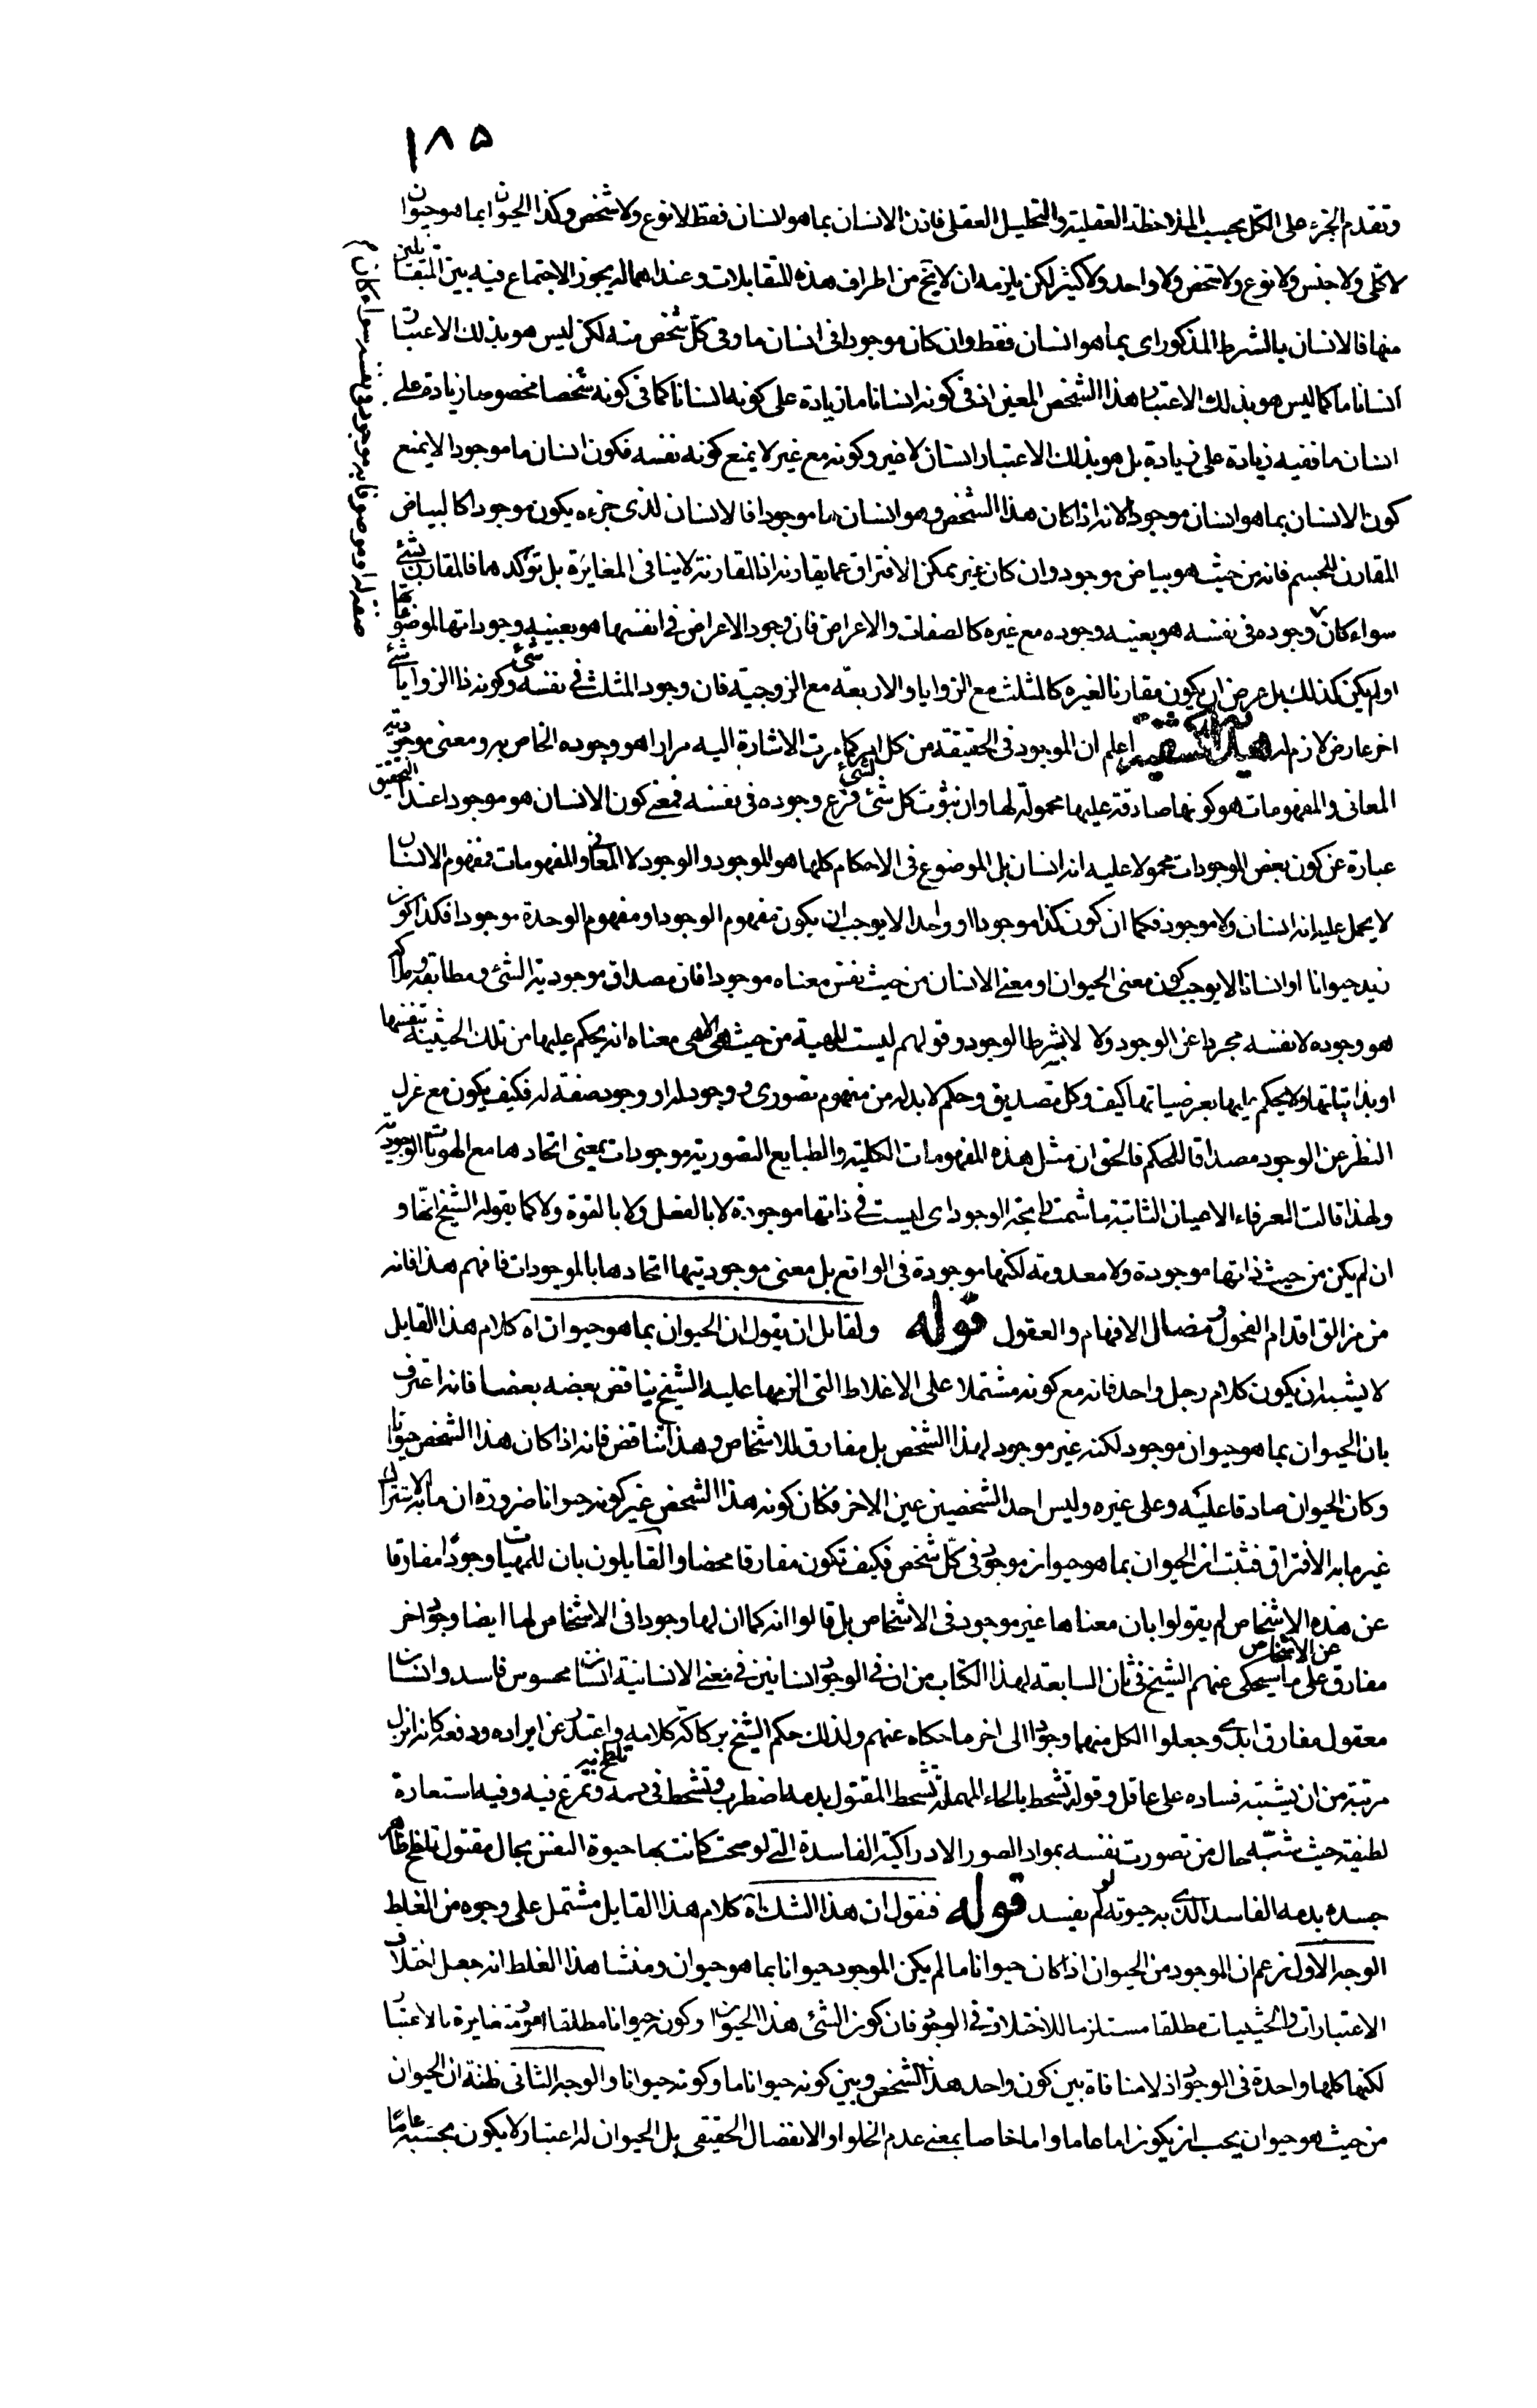 ١٨٥
وتقدم الجزء على الكل بحسب الملاحظة العقلية والتحليل العقلى فاذن الانسان بما هو انسان فقط لا نوع ولا شخص وكذا الحيوان بما هو حيوان
لا كلّى ولا جنس ولا نوع ولا شخص ولا واحد ولا كثير لكن يلزمه ان لا يخ من اطراف هذه المتقابلات وعند اهماله يجوز الاجتماع فيه بين المتقابلين
منها فالانسان بالشرط المذكور اى بما هو انسان فقط وان كان موجودا فى انسان ما وفى كلّ شخص منه لكن ليس هو بذلك الاعتبار
انسانا ما كما ليس هو بذلك الاعتبار هذا الشخص المعين اذ فى كونه انسانا ما زيادة على كونه انسانا كما فى كونه شخصا مخصوصا زيادة على
انسان ما ففيه زيادة على زيادة بل هو بذلك الاعتبار انسان لا غير وكونه مع غير لا يمنع كونه نفسه فكون انسان ما موجودا لا يمنع
كون الانسان بما هو انسان موجودا لانه اذا كان هذا الشخص وهو انسان ما موجودا فالانسان لذى جزءه يكون موجودا كالبياض
المقارن للجسم فانه من حيث هو بياض موجود وان كان غير ممكن الافتراق عما يقارنه اذ المقارنة لا ينافى المغايرة بل تؤكدهما فالمقارن بشئ
سواء كان وجوده فى نفسه هو بعينه وجوده مع غيره كالصفات والاعراض فان وجود الاعراض فى انفسها هو بعينه وجوداتها لموضوعاتها
او لم يكن كذلك بل عرض ان يكون مقارنا لغيره كالمثلث مع الزوايا والاربعة مع الزوجية فان وجود المثلث فى نفسه شئ وكونه ذا الزوايا شئ
اخر عارض لازم له اعلم ان الموجود فى الحقيقة من كل امر كما مرت الاشارة اليه مرارا هو وجوده الخاص به ومعنى موجودية
المعانى والمفهومات هو كونها صادقة عليها محمولة لها وان ثبوت كل شئ لشئ فرع وجوده فى نفسه فمعنى كون الانسان هو موجودا عند التحقيق
عبارة عن كون بعض الموجودات محمولا عليه انه انسان بل الموضوع فى الاحكام كلها هو الموجود والوجود لا المعانى والمفهومات فمفهوم الانسان
لا يحمل عليه انه انسان ولا موجود فكما ان كون كذا موجودا او واحدا لا يوجب ان يكون مفهوم الوجود او مفهوم الوحدة موجودا فكذا كون
زيد حيوانا او انسانا لا يوجب كون معنى الحيوان او معنى الانسان من حيث نفس معناه موجودا فان مصداق موجودية الشئ ومطابقه
هو وجوده لا نفسه مجردا عن الوجود ولا لا بشرط الوجود وقولهم ليست المهية من حيث هى الا هى معناه انه يحكم عليها من تلك الحيثية بنفسها
او بذاتياتها ولا يحكم عليها بعرضياتها كيف وكل تصديق وحكم لا بد له من مفهوم تصورى ووجود له او وجود صفة له فكيف يكون مع عزل
النظر عن الوجود مصداقا للحكم فالحق ان مثل هذه المفهومات الكلية والطبايع التصورية موجودات بمعنى اتحادها مع الهويات الوجودية
ولهذا قالت العرفاء الاعيان الثابتة ما شمت رايحة الوجود اى ليست فى ذاتها موجودة لا بالفعل ولا بالقوة ولا كما يقوله الشيخ انها و
ان لم يكن من حيث ذاتها موجودة ولا معدومة لكنها موجودة فى الواقع بل معنى موجوديتها اتحادها بالموجودات فافهم هذا فانه
من مزالق اقدام الفحول ومضال الافهام والعقول قوله ولقايل ان يقول ان الحيوان بما هو حيوان اه كلام هذا القايل
لا يشبه ان يكون كلام رجل واحد فانه مع كونه مشتملا على الاغلاط التى الزمها عليه الشيخ يناقض بعضه بعضا فانه اعترف
بان الحيوان بما هو حيوان موجود لكنه غير موجود لهذا الشخص بل مفارق للاشخاص وهذا تناقض فانه اذا كان هذا الشخص حيوانا
وكان الحيوان صادقا عليه وعلى غيره وليس احد الشخصين عين الاخر فكان كونه هذا الشخص غير كونه حيوانا ضرورة ان ما به الاشتراك
غير ما به الافتراق فثبت ان الحيوان بما هو حيوان موجود فى كلّ شخص فكيف تكون مفارقا محضا والقايلون بان للمهيات وجودا مفارقا
عن هذه الاشخاص لم يقولوا بان معناها غير موجود فى الاشخاص بل قالوا انه كما ان لها وجودا فى الاشخاص لها ايضا وجود اخر
مفارق عن الاشخاص على ما سيحكى عنهم الشيخ فى ثان السابعة لهذا الكتاب من ان فى الوجود انسانين فى معنى الانسانية انسان محسوس فاسد وانسان
معقول مفارق ابدى وجعلوا لكل منهما وجودا الى اخر ما حكاه عنهم ولذلك حكم الشيخ بركاكة كلامه واعتذر عن ايراده ودفعه كانه انزل
مرتبة من ان يشتبه فساده على عاقل وقوله تشحط بالحاء المهملة تشحط المقتول بدمه اضطرب وتشحط فى دمه تلطخ فيه وتمرغ فيه وفيه استعارة
لطيفة حيث شبّه حال من تصورت نفسه بمواد الصور الادراكية الفاسدة التى لو صحت كانت بها حيوة النفس بحال مقتول تلطخ ظاهر
جسده بدمه الفاسد الذى به حيوته لو لم يفسد قوله فنقول ان هذا الشك اه كلام هذا القايل مشتمل على وجوه من الغلط
الوجه الاول زعم ان الموجود من الحيوان اذا كان حيوانا ما لم يكن الموجود حيوانا بما هو حيوان ومنشا هذا الغلط انه جعل اختلاف
الاعتبارات والحيثيات مطلقا مستلزما للاختلاف فى الوجود فان كون الشئ هذا الحيوان وكونه حيوانا مطلقا امور متغايرة بالاعتبار
لكنها كلها واحدة فى الوجود اذ لا منافاة بين كون واحد هذا الشخص وبين كونه حيوانا ما وكونه حيوانا والوجه الثانى ظنه ان الحيوان
من حيث هو حيوان يجب ان يكون اما عاما واما خاصا بمعنى عدم الخلو او الانفصال الحقيقى بل الحيوان له اعتبار لا يكون بحسبه عاما
صفة له او موصوفا به موجود فى نفسه سواء كان